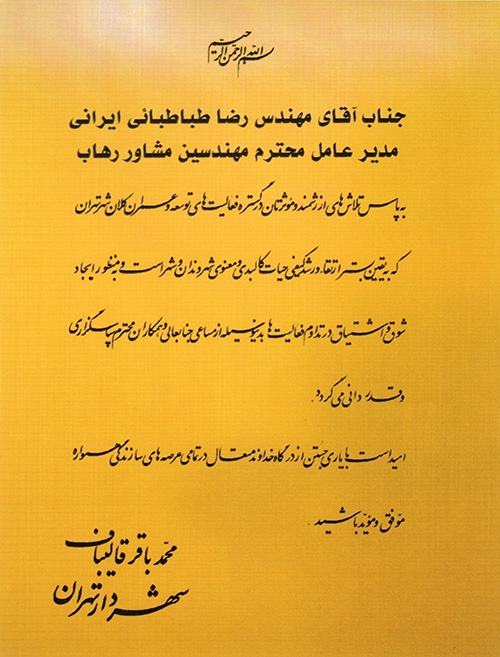 بسم الله الرحمن الرحیم
جناب آقای مهندس رضا طباطبائی ایرانی
مدیر عامل محترم مهندسین مشاور رهاب
به پاس تلاش های ارزشمند و موثرتان در گستره فعالیت های توسعه و عمران کلان شهر تهران
که به یقین بستر ارتقاء و رشد کیفی حیات کالبدی و معنوی شهروندان و شهر است و به منظور ایجاد
شوق و اشتیاق در تداوم فعالیت ها بدینوسیله از مساعی جنابعالی و همکاران محترم سپاسگزاری
و قدردانی می گردد.
امید است با یاری جستن از درگاه خداوند متعال در تمامی عرصه های سازندگی همواره
موّفق و مویّد باشید.
محمّد باقر قالیباف
شهردار تهران